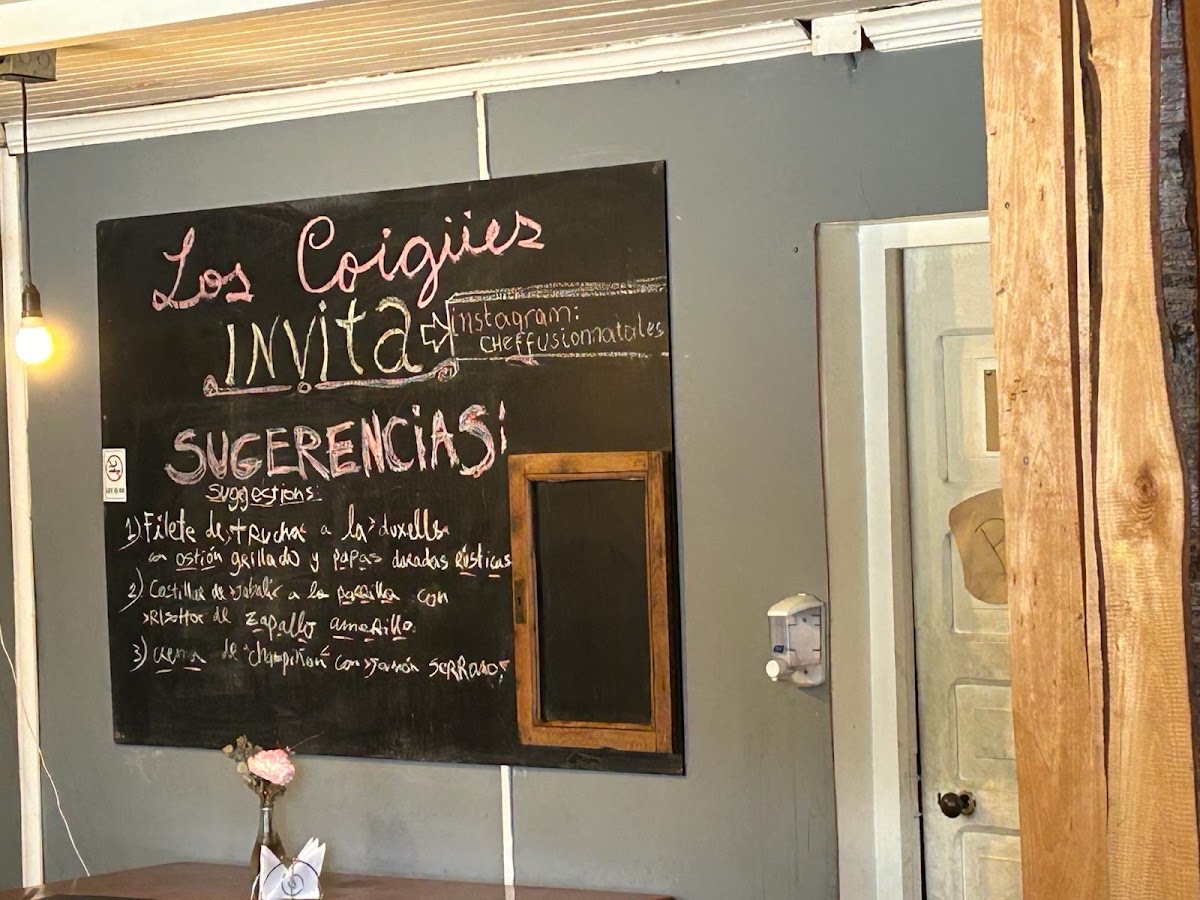 Los Coigües
INVita
instagram:
CHeffusionnatales
SUGERENCiAS¡
Suggestions:
1) Filete de trucha a la duxelle
con ostión grillado y papas doradas Rústicas
2) Costillar de jabalir a la parrilla con
risottor de zapallo amarillo.
3) crema de "champiñon" con jamón SeRRano.